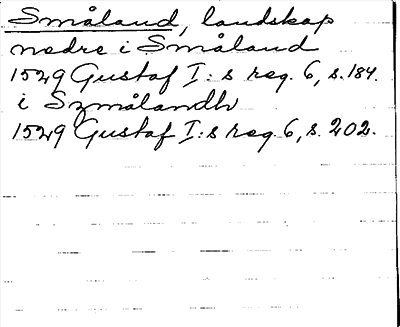 Småland, landskap
nedre i Småland
1529 Gustaf I:s reg. 6, s. 184.
i Szmålandh
1529 Gustaf I:s reg. 6, s. 202.